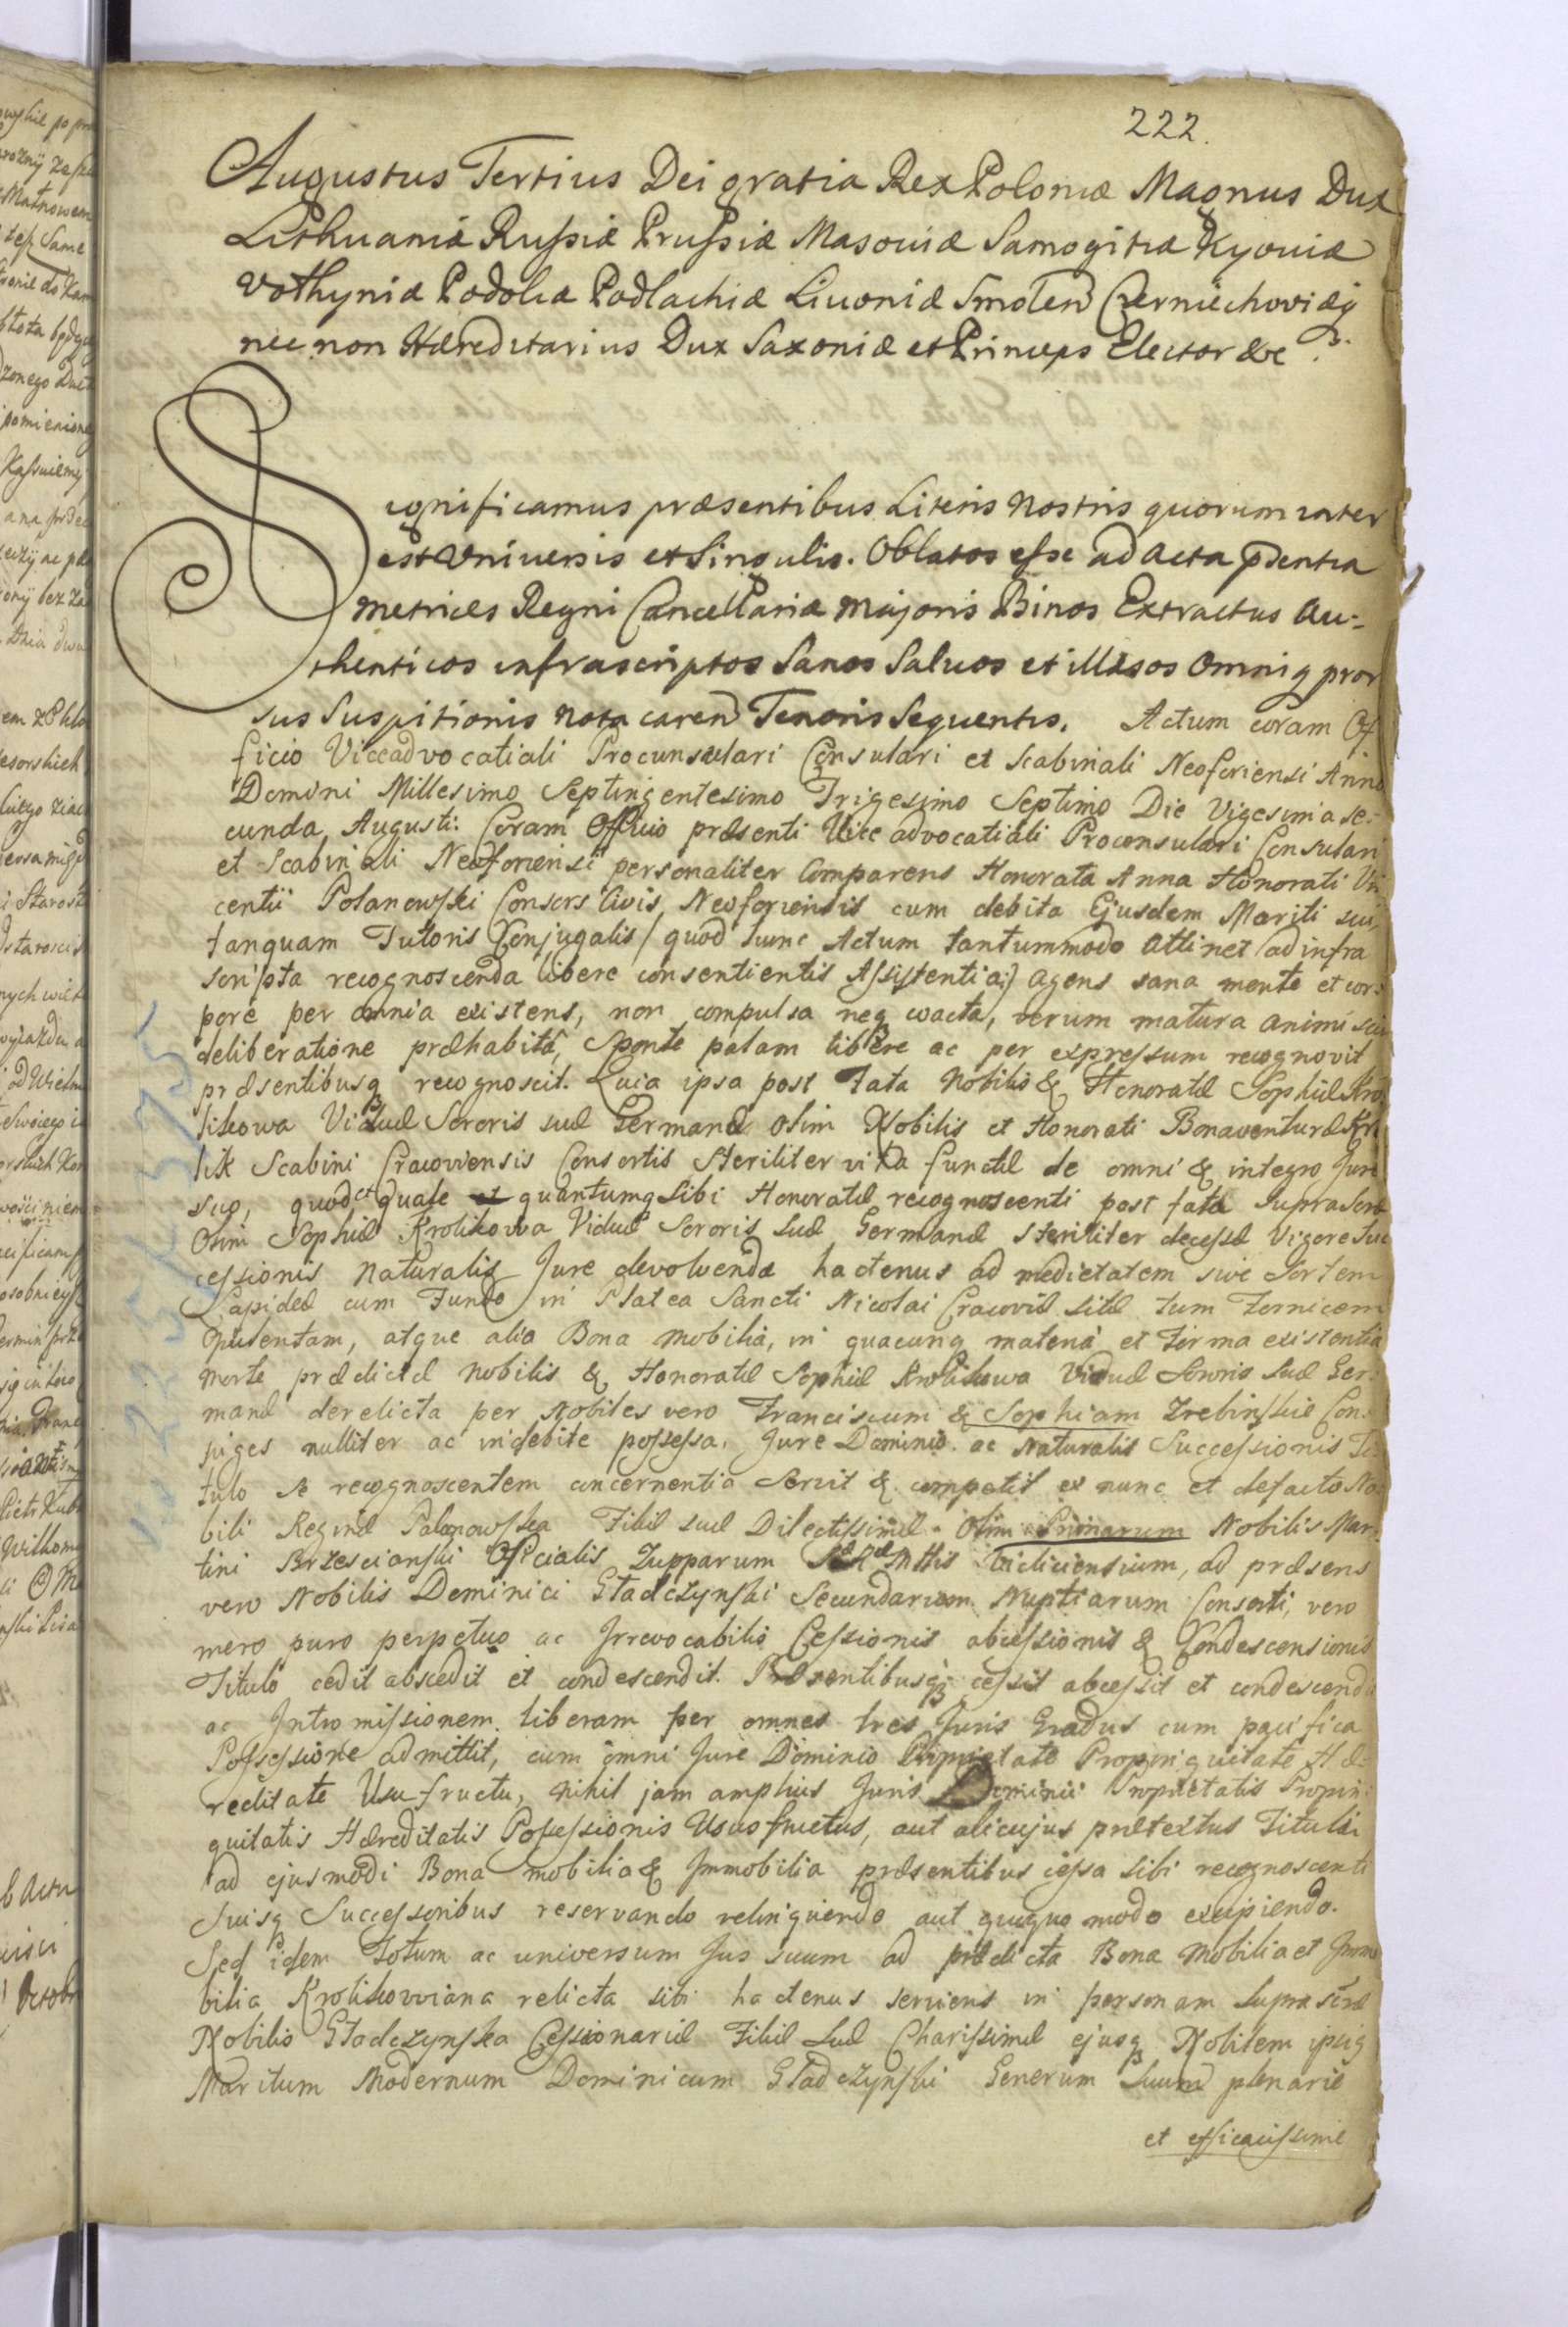 222.
Augustus Tertius Dei gratia Rex Poloniæ Magnus Dux
Lithuaniæ Russiæ Prussiæ Masoviæ Samogitiæ Kyoviæ
Volhyniæ Podoliæ Podlachiæ Livoniæ Smolen Czerniechoviæq
nec non Hæreditarius Dux Saxoniæ et Princeps Elector &c
Significamus præsentibus Literis Nostris quorum inter
est Universis et Singulis. Oblatos esse ad Acta pŝentia
Metrices Regni Cancellariæ Majoris Binos Extractus Au-
thenticos infrascriptos Sanos Salvos et illæsos Omniq pror
sus Suspitionis nota caren Tenoris Sequentis. Actum coram Of
ficio Viceadvocatiali Proconsulari Consulari et Scabinali Neoforiensi Anno
Domini Millesimo Septingentesimo Trigesimo Septimo Die Vigesima se-
cunda Augusti. Coram Officio præsenti Vice advocatiali Proconsulari Consulari
et Scabinali Neoforiensi personaliter Comparens Honorata Anna Honorati Vin
centii Polanowski Consors Civis Neoforiensis cum debita Ejusdem Mariti sui,
tanquam Tutoris Conjugalis / quod hunc Actum tantummodo attinet / ad infra
scripta recognoscenda libere consentientis Assistentia;) agens sana mente et cor-
pore per omnia existens, non compulsa neq coacta, verum matura animi sui
deliberatione præhabitâ, Sponte palam libere ac per expressum recognovit
præsentibusq recognoscit. Quia ipsa post Fata Nobilis & Honoratæ Sophiæ Kro
likowa Viduæ Sororis suæ Germanæ olim Nobilis et Honorati Bonaventuræ Kro
lik Scabini Cracoviensis Consortis Steriliter vita functæ de omni & integro Jure
suo, quod et quale et quantumq Sibi Honoratæ recognoscenti post fata Supra Scrae
Olim Sophiæ Krolikowa Viduæ Sororis Suæ Germanæ Steriliter decessæ Vigore Suc
cessionis Naturalis Jure devolvendæ hactenus ad medietatem sive Sortem
Lapideæ cum Fundo in Platea Sancti Nicolai Cracoviæ sitæ tum Fornicem
Opulentam, atque alia Bona Mobilia, in quacunq materia et Forma existentia
Morte prædictæ Nobilis & Honoratæ Sophiæ Krolikowa Viduæ Sororis Suæ Ger-
manæ derelicta per Nobiles vero Franciscum & Sophiam Trebinskie Con-
juges nulliter ac indebite possessa. Jure Dominio ac Naturalis Successionis Ti-
tulo se recognoscentem concernentia Servit & competit ex nunc et de facto No-
bili Reginæ Polanowska Filiæ suæ Dilectissimæ Olim Primarum Nobilis Mar-
tini Brzescianski Officialis Zupparum Mttis Vieliciensium, ad præsens
vero Nobilis Dominici Stadczynski Secundarum Nuptiarum Consorti, vero
mero puro perpetuo ac Irrevocabilis Cessionis abcessionis & Condescensionis
Titulo cedit abscedit et condescendit. Præsentibusq cessit abcessit et condescendit
ac Intromissionem liberam per omnes tres Juris Gradus cum pacifica
Possessione admittit, cum omni Jure Dominio Proprietate Propinquitate Hæ-
reditate Usu-fructu, nihil jam amplius Juris Dominii Proprietatis Propin-
quitatis Hæreditatis Possessionis Ususfructus, aut alicujus prætextus Tituli
ad ejusmodi Bona mobilia & Immobilia præsentibus cessa sibi recognoscenti
Suisq Successoribus reservando relinquendo aut quoquo modo excipiendo.
Sed idem Totum ac universum Jus suum ad prædicta Bona Mobilia et Immo
bilia Krolikowiana relicta sibi hactenus serviens in personam Supra scræ
Nobilis Stadczynska Cessionariæ Filiæ Suæ Charissimæ ejusq Nobilem ipsiq
Maritum Modernum Dominicum Stadczynski Generum Suum plenarie
et efficacissime